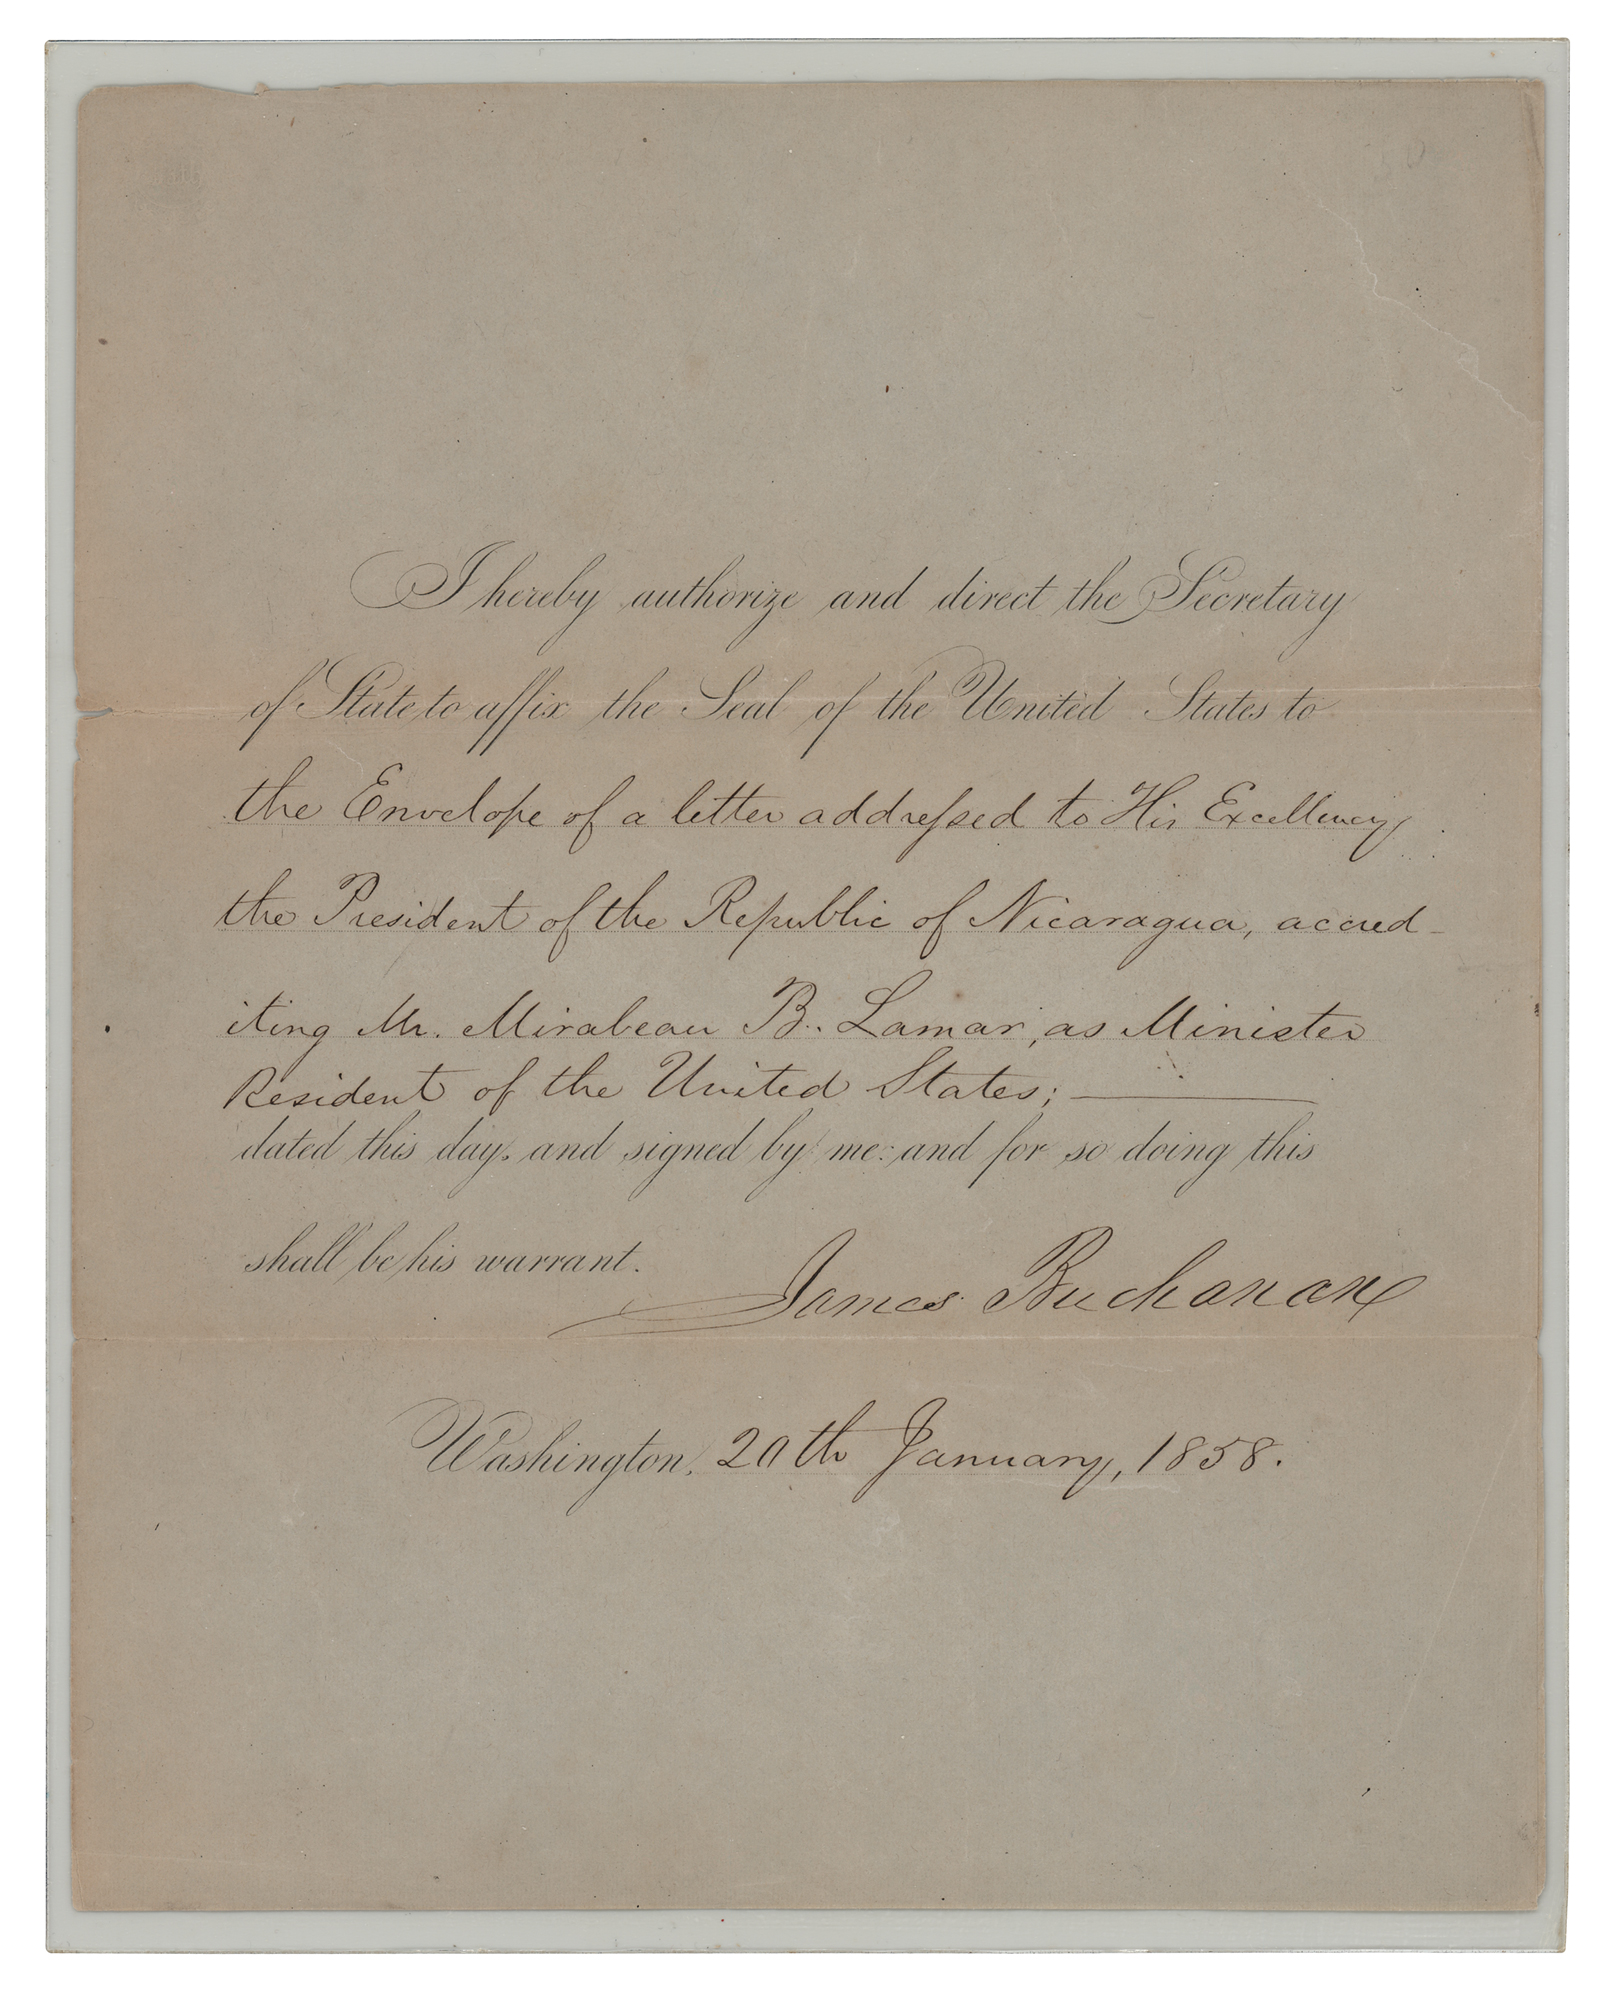 I hereby authorize and direct the Secretary
of State to affix the Seal of the United States to
the Envelope of a letter addressed to His Excellency
the President of the Republic of Nicaragua, accred-
iting Mr. Mirabeau B. Lamar, as Minister
Resident of the United States;
dated this day, and signed by me: and for so doing this
shall be his warrant.
James Buchanan
Washington, 20th January, 1858.